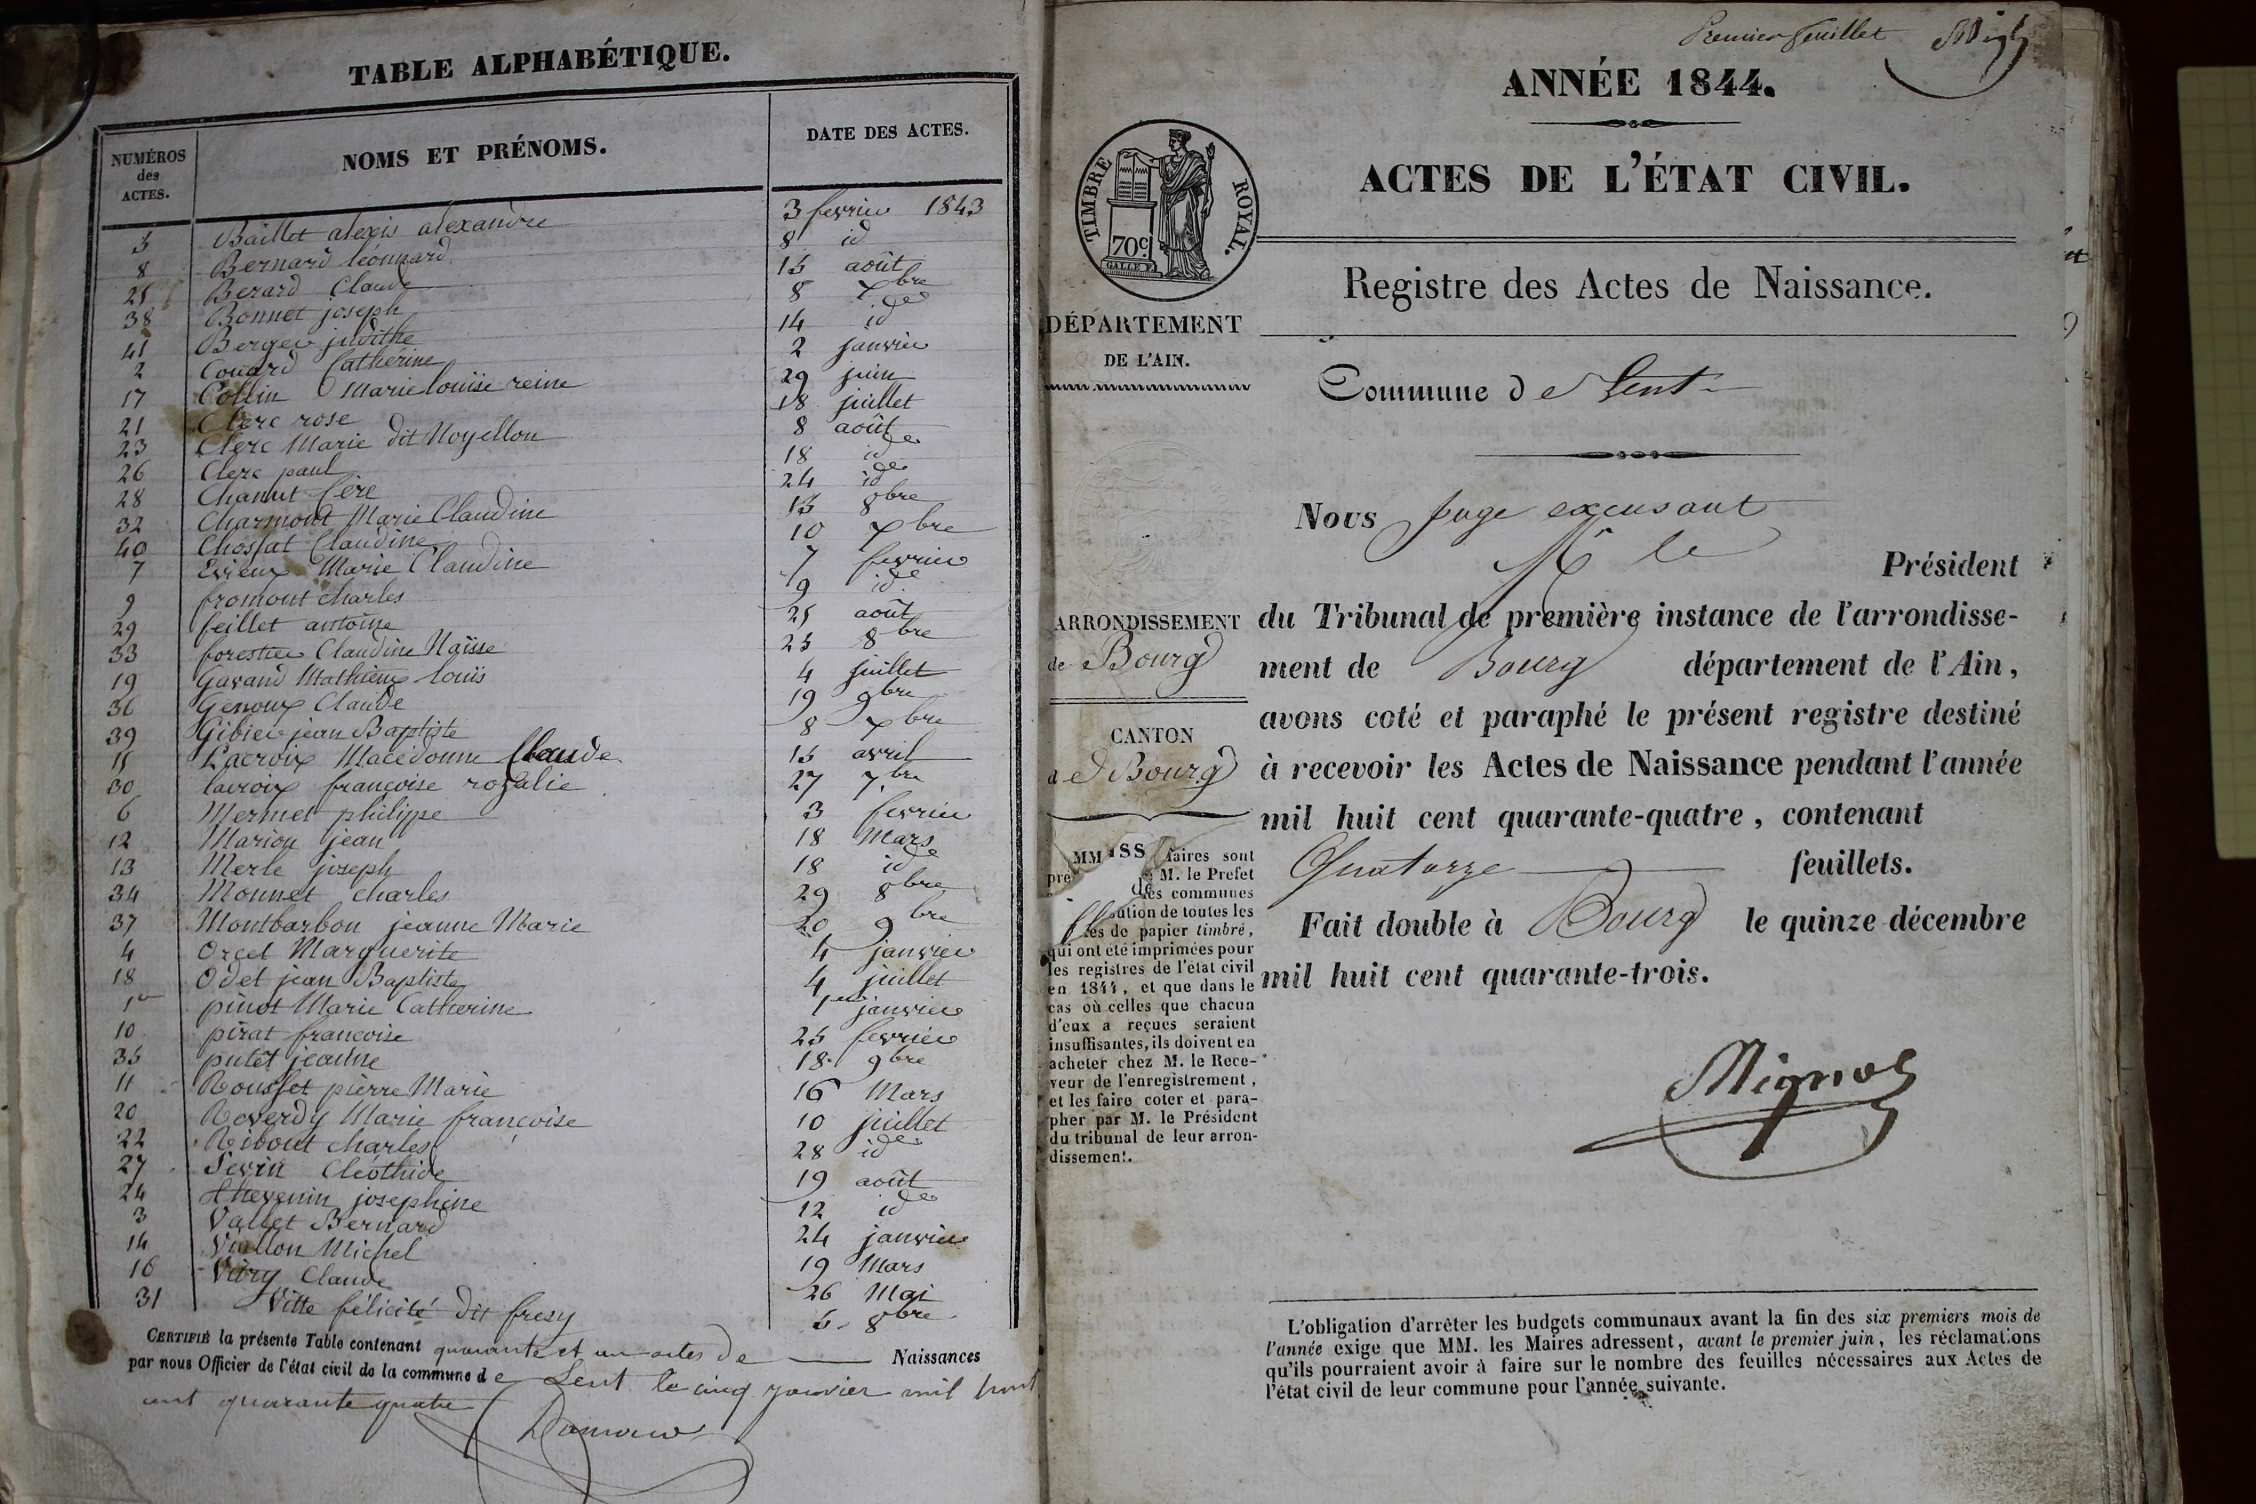 TABLE ALPHABÉTIQUE.
NUMÉROS
des
ACTES.
NOMS ET PRÉNOMS.
DATE DES ACTES.
5 Baillet alexis alexandre 3 fevrier 1843
8 Bernard léonnard 8 id
25 Berard Claude 15 août
38 Bonnet joseph 8 xbre
41 Berger judithe 14 ide
2 Couard Catherine 2 janvier
17 Collin Marie louise reine 29 juin
21 Clerc rose 18 juillet
23 Clerc Marie dit Noyellon 8 août
26 Clerc paul 18 ide
28 Chanut 24 ide
32 Charmont Marie Claudine 15 8bre
40 Chossat Claudine 10 xbre
7 Evieux Marie Claudine 7 fevrier
9 fromont charles 9 ide
29 feillet antoine 25 août
33 forestier Claudine Naïsse 25 8bre
19 Gavand Mathieux louis 4 juillet
36 Genoux Claude 19 9bre
39 Gibier jean Baptiste 8 xbre
15 Lacroix Macedonne Claude 15 avril
30 lacroix françoise rozalie 27 7bre
6 Mermet philippe 3 fevrier
12 Marion jean 18 Mars
13 Merle joseph 18 ide
34 Monnet charles 29 8bre
37 Montbarbon jeanne Marie 20 9bre
4 Orcet Marguerite 4 janvier
18 Odet jean Baptiste 4 juillet
1er pinot Marie Catherine 1er janvier
10 pirat françoise 25 fevrier
35 putet jeanne 18 9bre
11 Rousset pierre Marie 16 Mars
20 Reverdy Marie françoise 10 juillet
22 Ribout charles 28 ide
27 Sevin Cléothide 19 août
24 thevenin josephine 12 ide
3 Vallet Bernard 24 janvier
14 Viallon Michel 19 Mars
16 Vitry Claude 26 Mai
31 Vitte félicité dit fresy 5 8bre
CERTIFIÉ la présente Table contenant quarante et un actes de Naissances
par nous Officier de l'état civil de la commune de Lent le cinq janvier mil huit
cent quarante quatre
Premier feuillet
ANNÉE 1844.
ACTES DE L'ÉTAT CIVIL.
TIMBRE ROYAL.
70c
Registre des Actes de Naissance.
DÉPARTEMENT
DE L'AIN.
Commune de Lent
Nous juge excusant
Mr le
Président
du Tribunal de première instance de l'arrondisse-
ment de Bourg département de l'Ain,
avons coté et paraphé le présent registre destiné
à recevoir les Actes de Naissance pendant l'année
mil huit cent quarante-quatre, contenant
Quatorze feuillets.
Fait double à Bourg le quinze décembre
mil huit cent quarante-trois.
Mignot
ARRONDISSEMENT
de Bourg
CANTON
de Bourg
MM faires sont
pré M. le Prefet
des communes
ution de toutes les
es de papier timbré,
qui ont été imprimées pour
les registres de l'état civil
en 1844, et que dans le
cas où celles que chacun
d'eux a reçues seraient
insuffisantes, ils doivent en
acheter chez M. le Rece-
veur de l'enregistrement,
et les faire coter et para-
pher par M. le Président
du tribunal de leur arron-
dissement.
L'obligation d'arrêter les budgets communaux avant la fin des six premiers mois de
l'année exige que MM. les Maires adressent, avant le premier juin, les réclamations
qu'ils pourraient avoir à faire sur le nombre des feuilles nécessaires aux Actes de
l'état civil de leur commune pour l'année suivante.